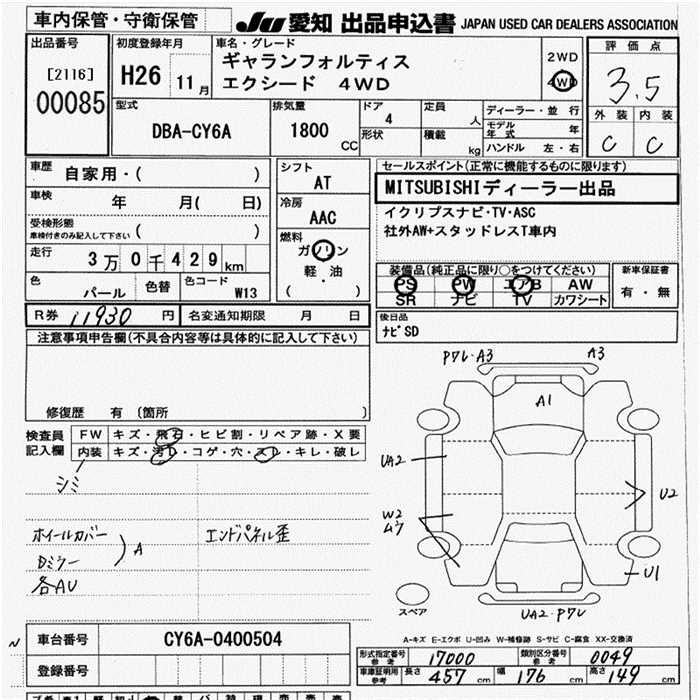 車内保管・守衛保管
JU 愛知 出品申込書 JAPAN USED CAR DEALERS ASSOCIATION
出品番号
[2116]
00085
初度登録年月
H26 11月
車名・グレード
ギャランフォルティス
エクシード 4WD
2WD
4WD
評価点
3.5
外装 内装
C C
型式
DBA-CY6A
排気量
1800 CC
ドア
4
形状
定員
人
積載
kg
ディーラー・並行
モデル年式 年
ハンドル 左・右
車歴
自家用・( )
車検
年 月( 日)
受検形態
車検付きのみ記入して下さい ( )
走行
3万0千429km
色
パール
色替
色コード
W13
シフト
AT
冷房
AAC
燃料
ガソリン
軽・油
( )
セールスポイント(正常に機能するものに限ります)
MITSUBISHIディーラー出品
イクリプスナビ・TV・ASC
社外AW+スタッドレスT車内
装備品(純正品に限り○をつけてください)
PS PW エアB AW
SR ナビ TV カワシート
新車保証書
有・無
R券 11930円
名変通知期限 月 日
後日品
ナビSD
注意事項申告欄(不具合内容等は具体的に記入して下さい)
修復歴 有 〔箇所 〕
検査員
記入欄
FW キズ・飛石・ヒビ割・リペア跡・X要
内装 キズ・汚レ・コゲ・穴・スレ・キレ・破レ
シミ
ホイールカバー
Dミラー
A
各AU
エンドパネル歪
P7レ・A3
A3
A1
UA2
U2
W2
ムラ
U1
スペア
UA2・P7レ
A-キズ E-エクボ U-凹み W-補修跡 S-サビ C-腐食 XX-交換済
車台番号
CY6A-0400504
登録番号
形式指定番号
参考
17000
類別区分番号
参考
0049
車庫証明用
参考
長さ 457 cm
幅 176 cm
高さ 149 cm